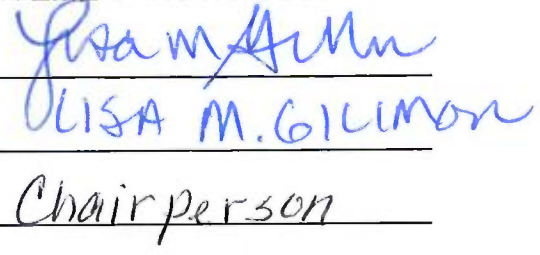 Lisa M
LISA M. GILLMOR
Chairperson